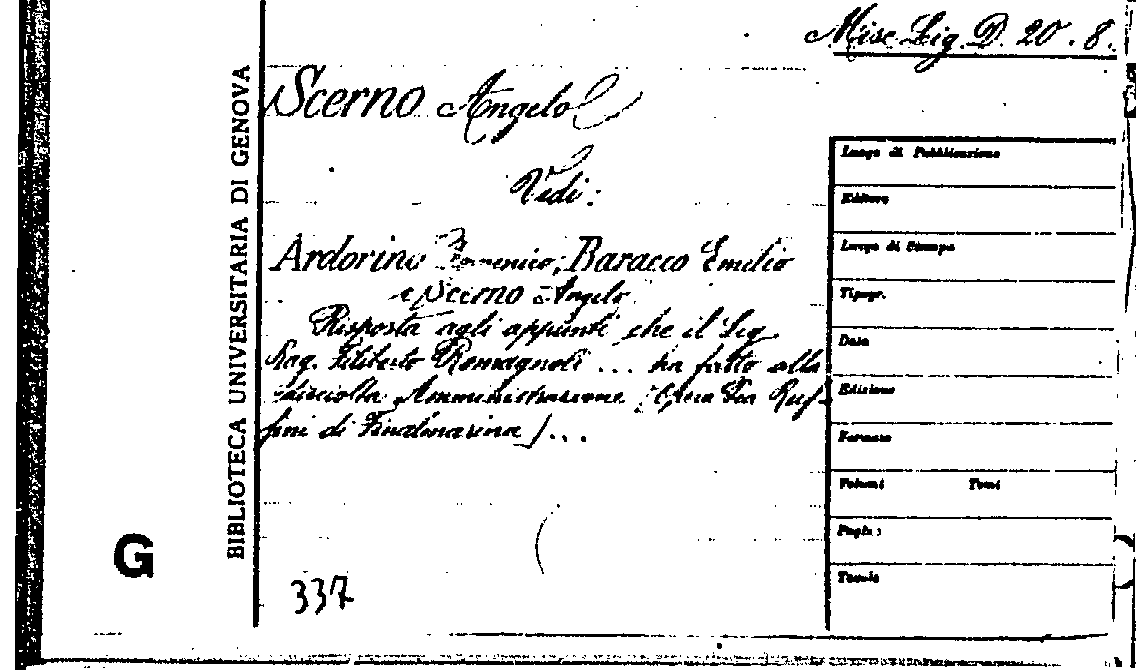 Misc. Lig. D. 20. 8.
Scerno Angelo
Vedi:
Ardorino Domenico, Baracco Emilio
e Scerno Angelo
Risposta agli appunti che il Sig.
Rag. Filiberto Romagnoli ... ha fatto alla
disciolta Amministrazione [Opera Pia Ruf-
fini di Finalmarina] ...
337
BIBLIOTECA UNIVERSITARIA DI GENOVA
G
Luogo di Pubblicazione
Editore
Luogo di Stampa
Tipogr.
Data
Edizione
Formato
Volumi Tomi
Pagine
Tavole